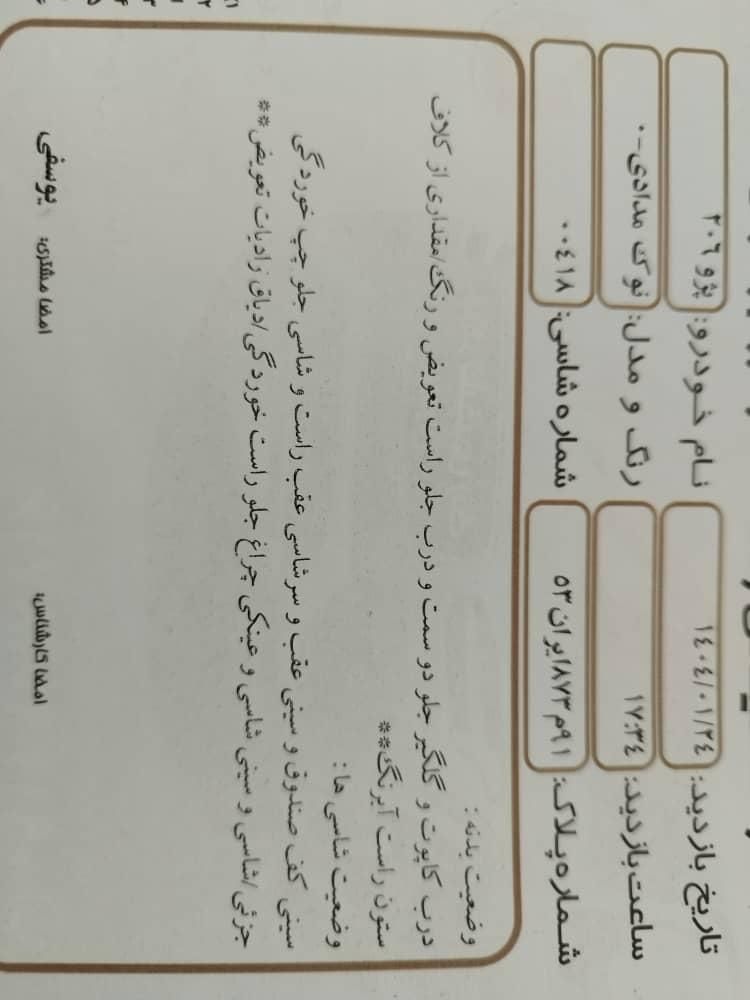 نام خودرو: پژو ۲۰۶
تاریخ بازدید: ۱٤۰٤/۰۱/۲٤
رنگ و مدل: نوک مدادی-۰
ساعت بازدید: ۱۷:۳٤
شماره شاسی: ۰۰٤۱۸
شماره پلاک: ۹۱م۸۷۳ایران۵۳
وضعیت بدنه :
درب کاپوت و گلگیر جلو دو سمت و درب جلو راست تعویض و رنگ/مقداری از کلاف
ستون راست آبرنگ**
وضعیت شاسی ها :
سینی کف صندوق و سینی عقب و سرشاسی عقب راست و شاسی جلو چپ خوردگی
جزئی/شاسی و سینی شاسی و عینکی چراغ جلو راست خوردگی/دیاق رادیات تعویض**
امضا کارشناس:
امضا مشتری: یوسفی